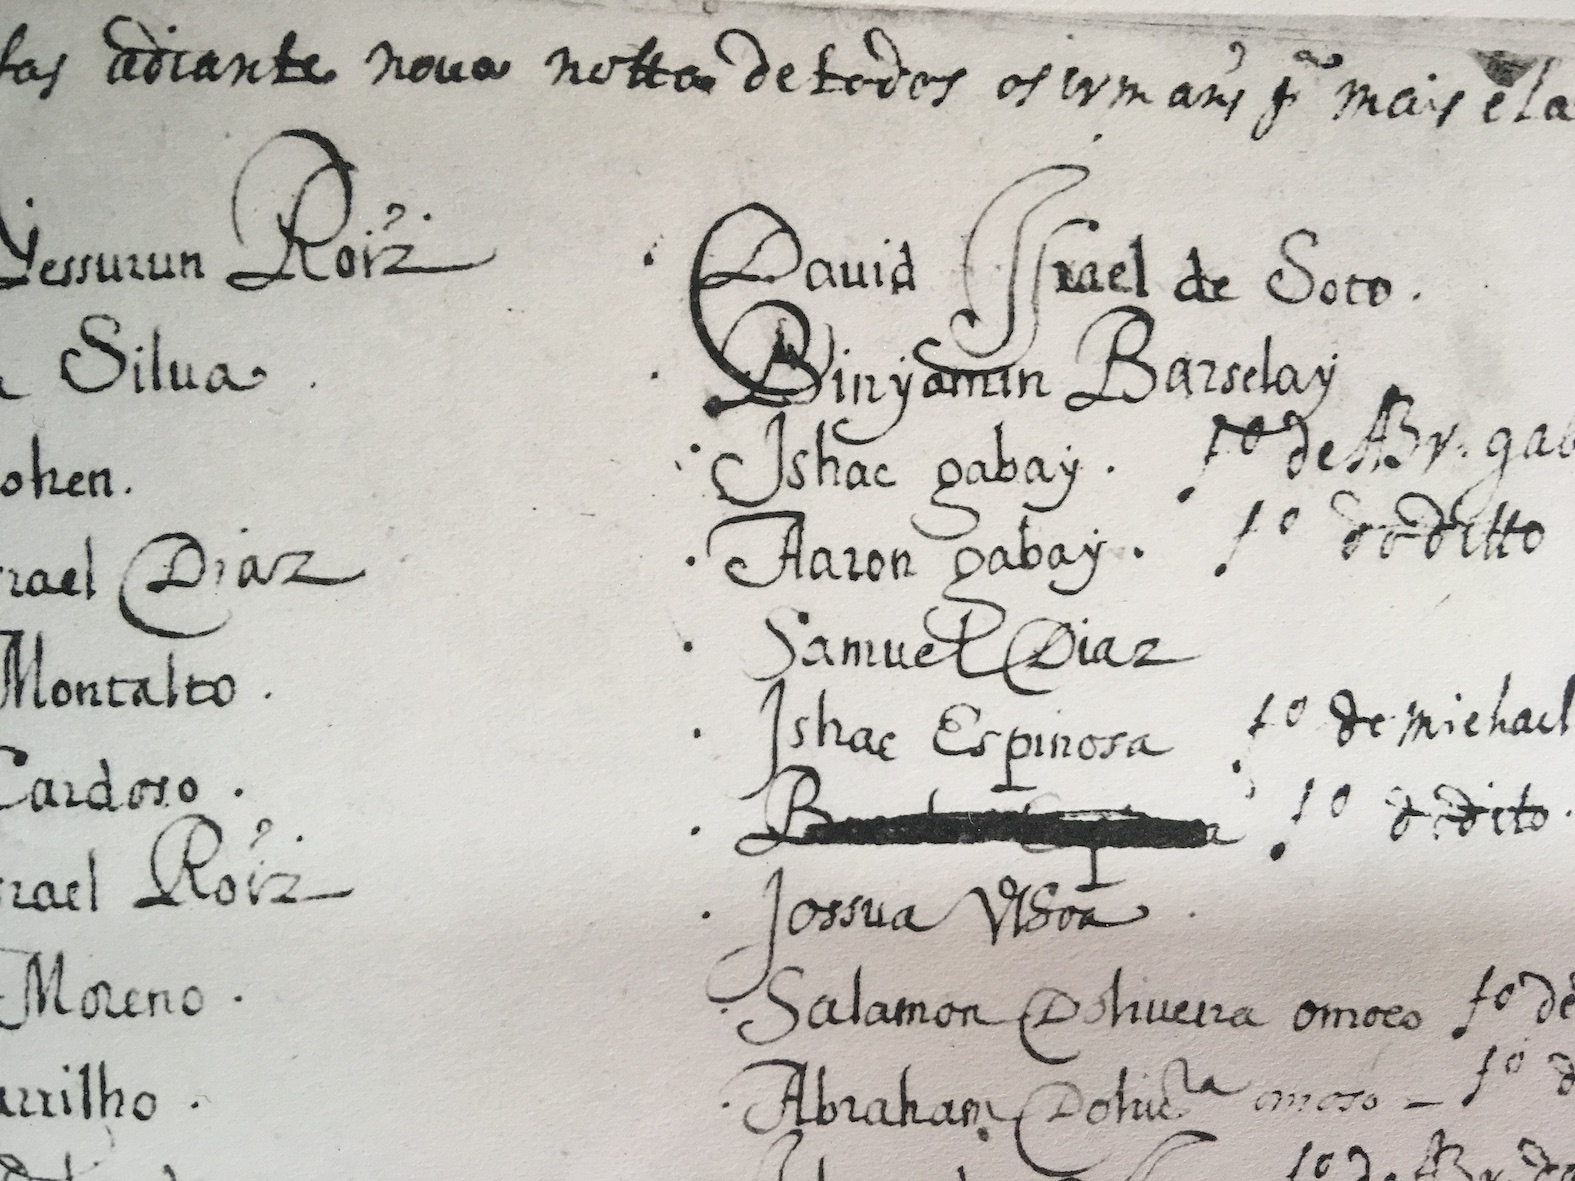 adiante noua notta de todos os irmaõs q̃ mais ela
Yessurun Roiz̃
Silua
ohen.
rael Diaz
Montalto.
Cardoso.
rael Roiz̃
Moreno.
arrilho.
Dauid Israel de Soto.
Binyamin Barselay
Ishac gabay. fº de Abr. gab
Aaron gabay. fº do ditto
Samuel Diaz
Ishac Espinosa fº de michael
fº do dito.
Jossua
Salamon Doliueira omoço fº de
Abraham Doliuʳᵃ omoso – fº d
fº de Abr.